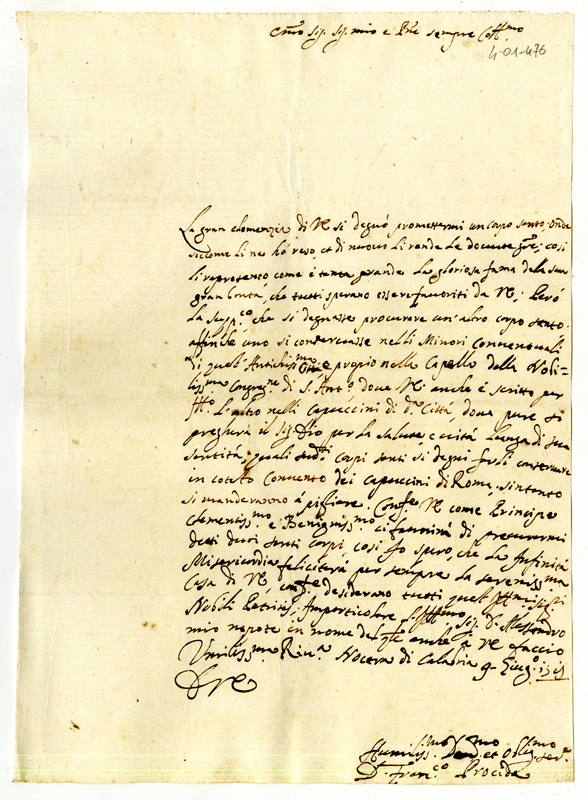 sig. sig. mio e Pne sempre
4-01-476
La gran clemenzia di VE si degnò promettermi un corpo santo, onde
siccome li ne hò reso, et di nuovo li rende le dovute gre; così
li represento come è tanta grande la gloriosa fama della sua
gran bontà, che tutti sperano essere favoriti da VE. Però
la supp.co che si degnasse procurare un'altro corpo santo
affinche uno si conservasse nelli Minori Conventuali
di quest' Antichiss.ma Città e proprio nella Capella della Nobi=
liss.ma Congreg.ne di S. Ant.o dove VE anche è scritto per
L'altro nelli Capuccini di d.a Città, dove pure si
pregherà il Sig. Dio per la salute e vita longa di sua
quali corpi santi si degni farli conservare
in cotesto Convento dei Capuccini di Roma, sintanto
si manderanno à pigliare. VE come Principe
Clementiss.mo e Benigniss.mo ci favorirà di procurarmi
detti duoi santi corpi, così Io spero, che la Infinità
Misericordia feliciterà per sempre la sereniss.ma
Casa di VE, desiderano tutti quest
Nobili Patritij, Imparticolare Sig. D. Alessandro
mio nepote in nome del anche VE faccio
Umiliss.ma Riv.a Nocera di Calabria 9 Giug.o
D VE
Humiliss.mo et ser.e
D. Fran.co Procida